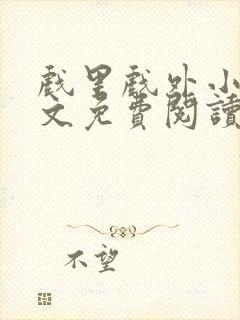 戲里戲外小
文免費閱讀
不望